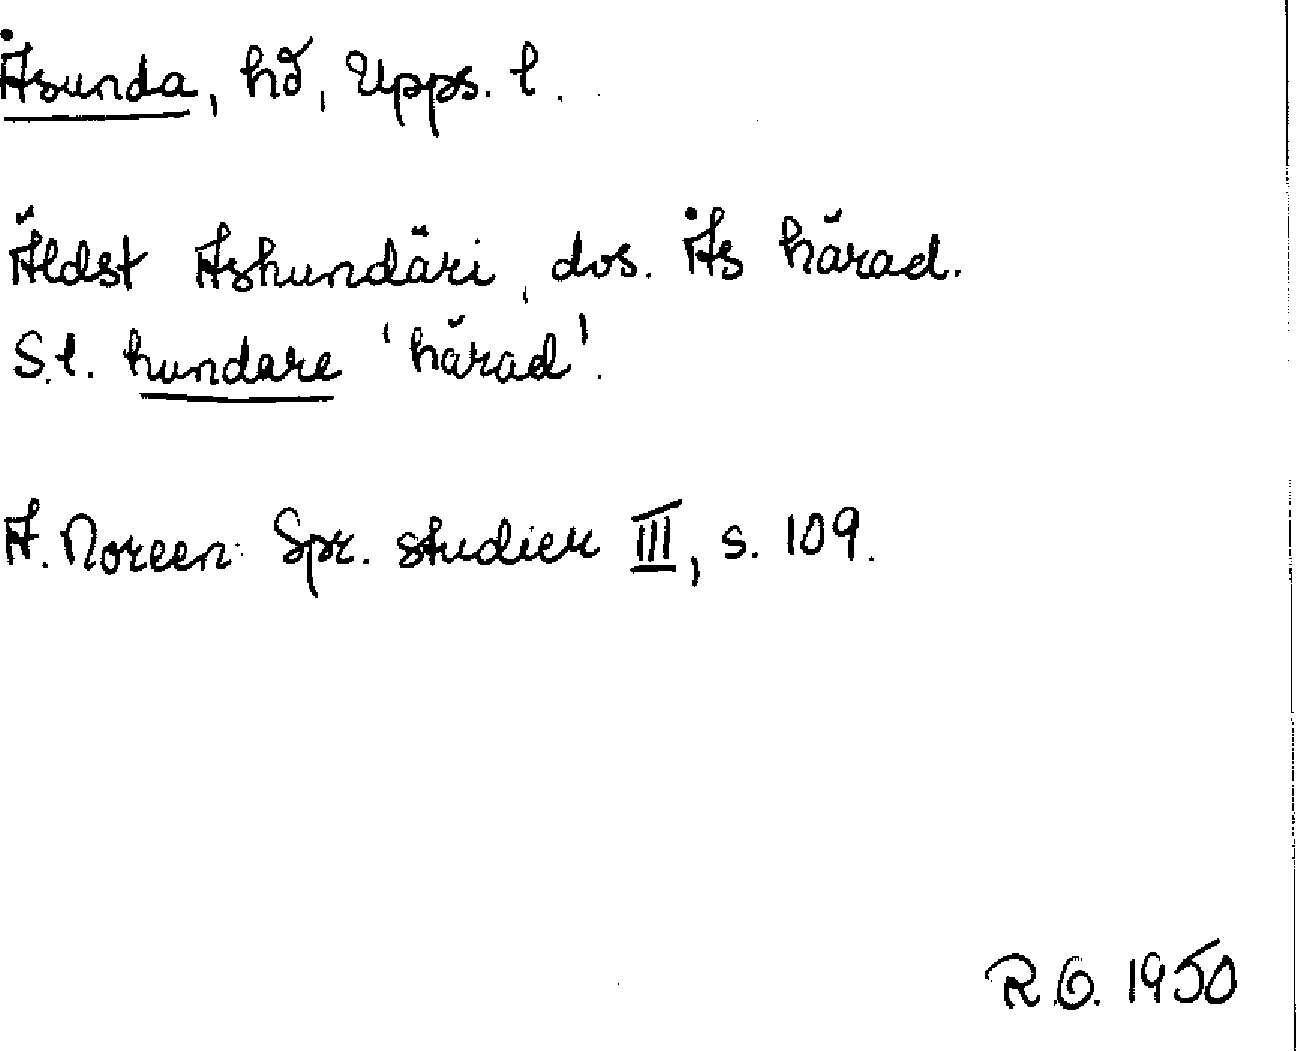 Åsunda, hd, Upps. l.
Äldst Ashundäri, dvs. Ås härad.
S.l. hundare 'härad'.
A. Noreen: Spr. studier III, s. 109.
R.O. 1950